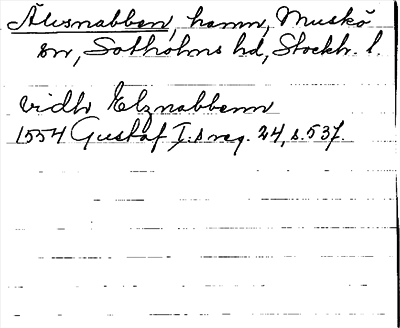 Älvsnabben, hamn, Muskö
sn, Sotholms hd, Stockh. l.
vidh Elgznabbenn
1554 Gustaf I:s reg. 24, s. 537.